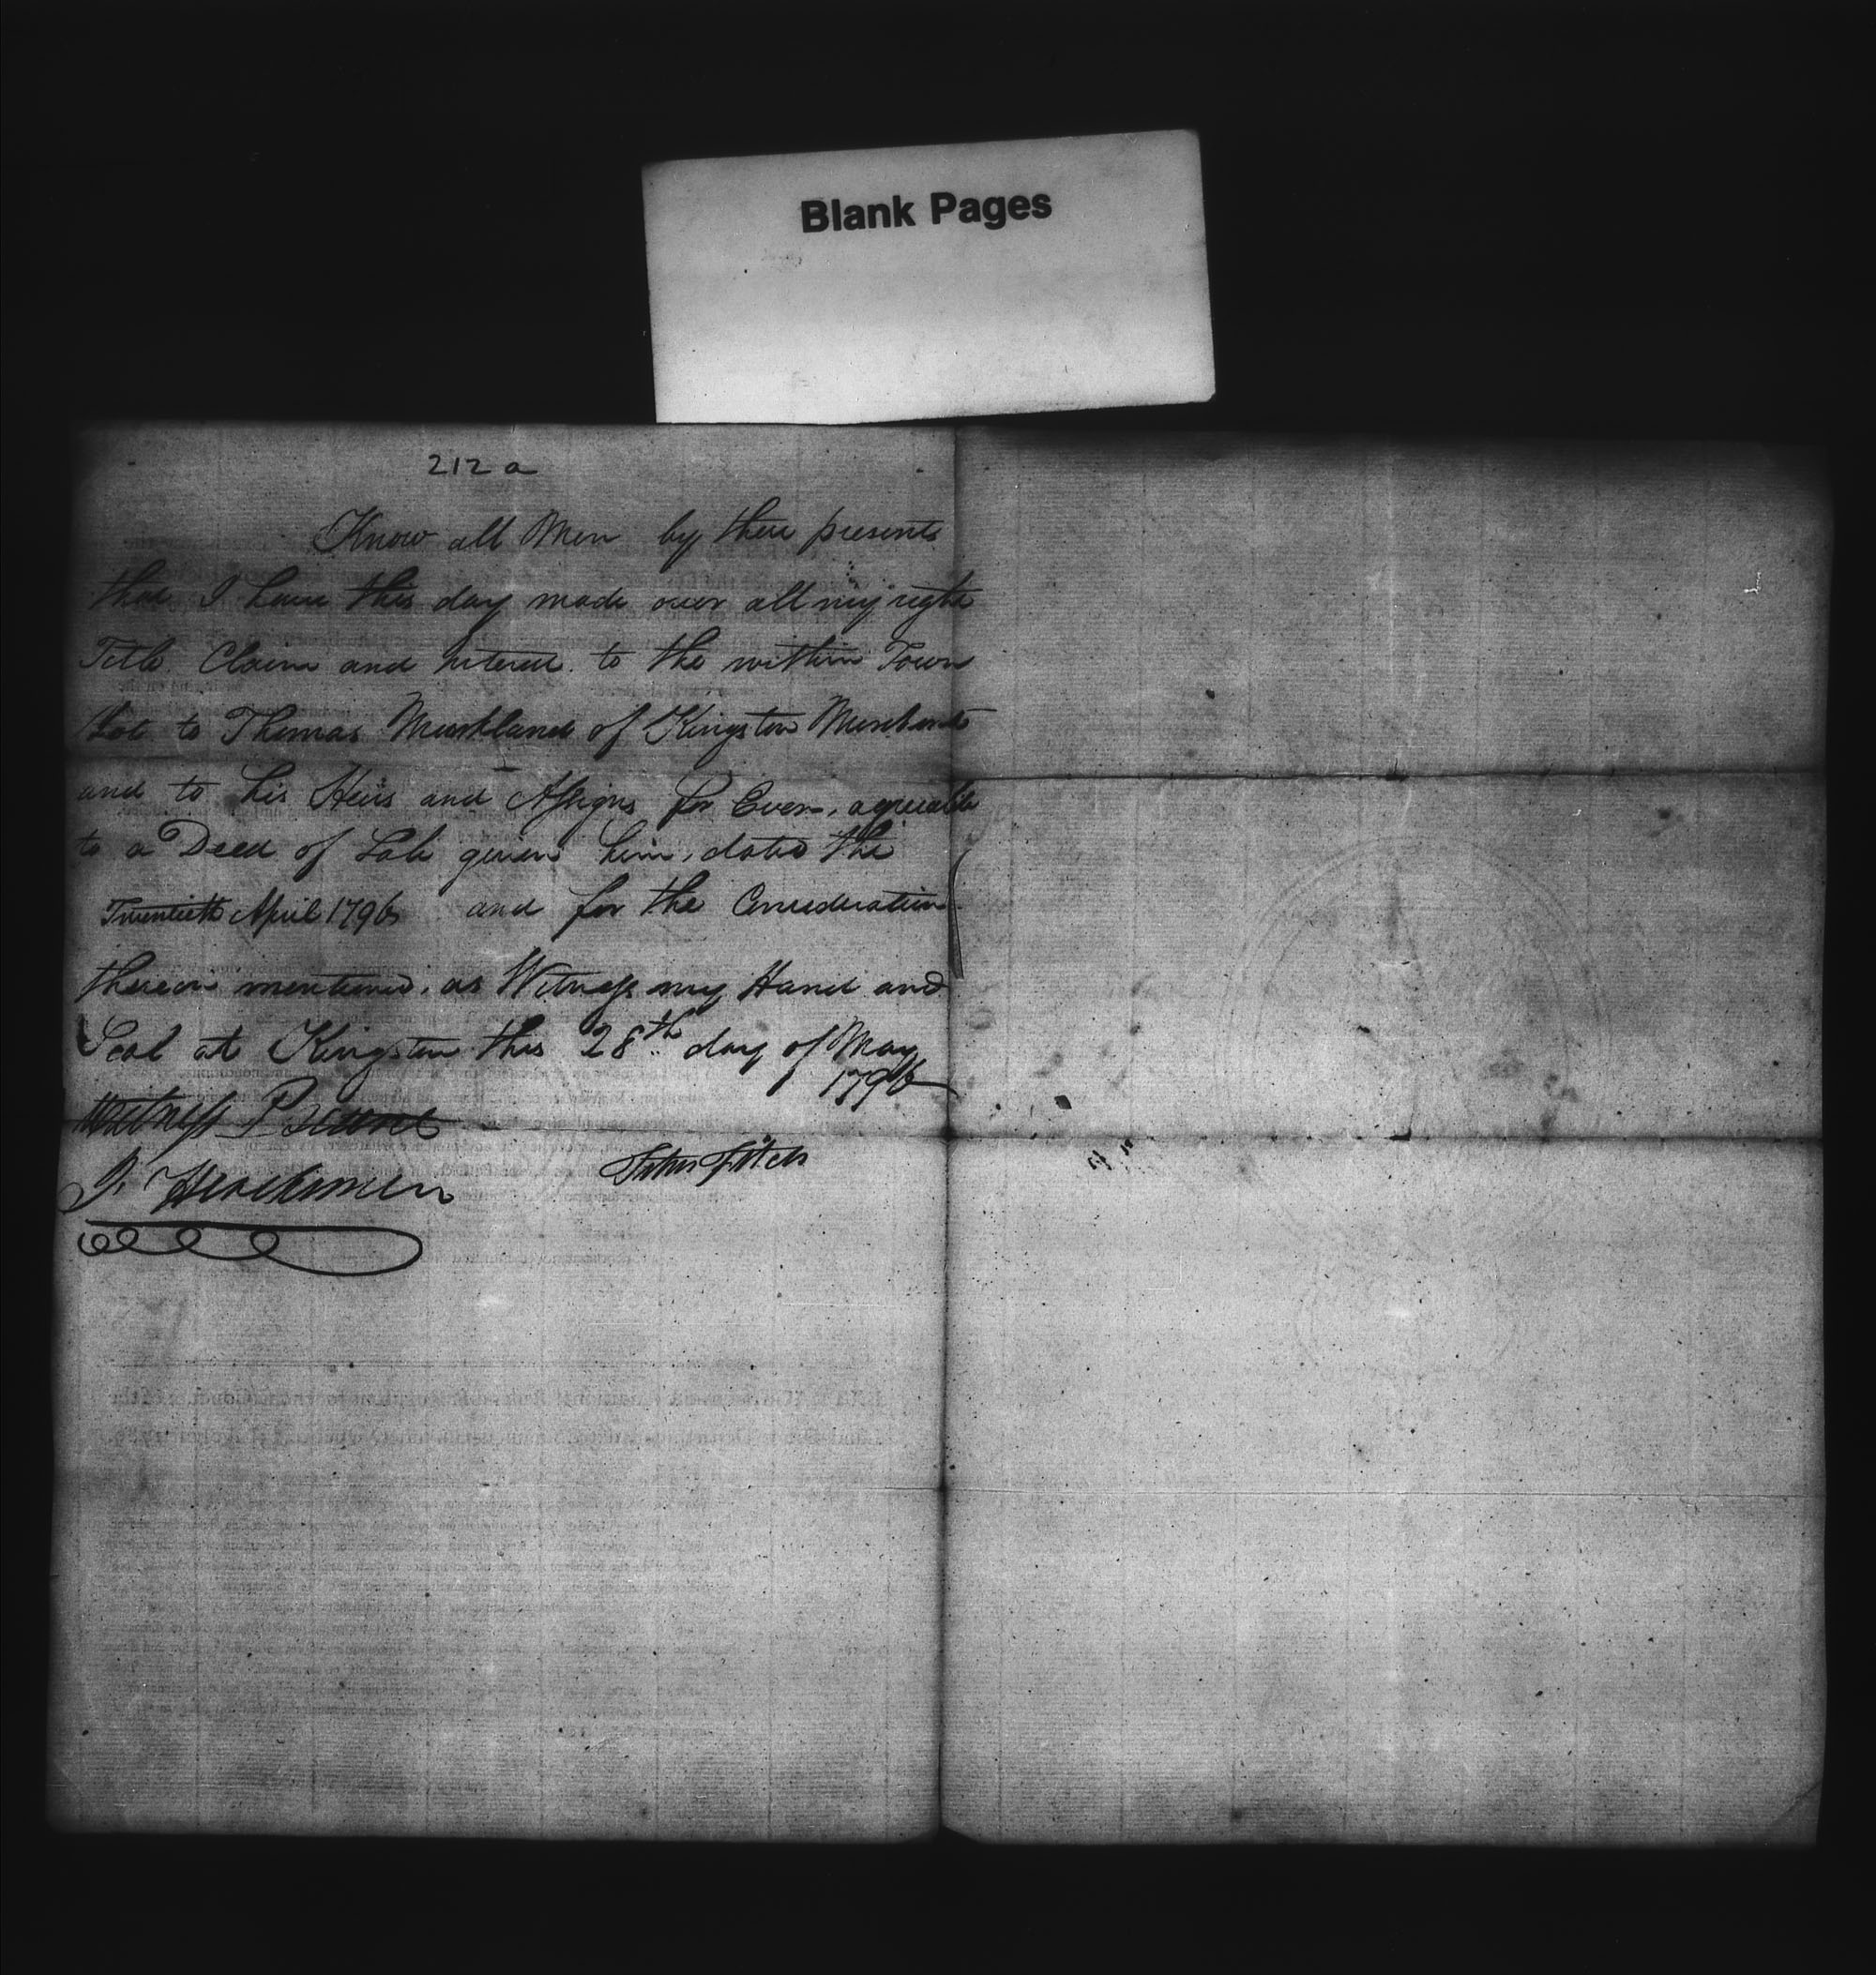 Blank Pages
212 a
Know all Men by these presents
that I have this day made over all my right
Title Claim and Interest to the within Town
Lot to Thomas Markland of Kingston Merchant
and to his Heirs and Assigns for Ever, agreeable
to a Deed of Sale given him, dated the
Twentieth April 1796 and for the Consideration
thereon mentioned, as Witness my Hand and
Seal at Kingston this 28th day of May
1796
Witness Present
Titus Fitch
J. Herchmer